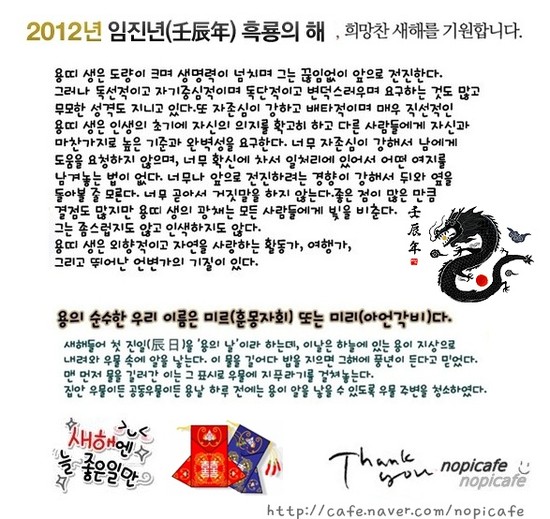 2012년 임진년(壬辰年) 흑룡의 해 , 희망찬 새해를 기원합니다.
용띠 생은 도량이 크며 생명력이 넘치며 그는 끊임없이 앞으로 전진한다.
그러나 독선적이고 자기중심적이며 독단적이고 변덕스러우며 요구하는 것도 많고
무모한 성격도 지니고 있다.또 자존심이 강하고 배타적이며 매우 직선적인
용띠 생은 인생의 초기에 자신의 의지를 확고히 하고 다른 사람들에게 자신과
마찬가지로 높은 기준과 완벽성을 요구한다. 너무 자존심이 강해서 남에게
도움을 요청하지 않으며, 너무 확신에 차서 일처리에 있어서 어떤 여지를
남겨놓는 법이 없다. 너무나 앞으로 전진하려는 경향이 강해서 뒤와 옆을
돌아볼 줄 모른다. 너무 곧아서 거짓말을 하지 않는다.좋은 점이 많은 만큼
결점도 많지만 용띠 생의 광채는 모든 사람들에게 빛을 비춘다.
그는 좀스럽지도 않고 인색하지도 않다.
용띠 생은 외향적이고 자연을 사랑하는 활동가, 여행가,
그리고 뛰어난 언변가의 기질이 있다.
壬辰年
용의 순수한 우리 이름은 미르(훈몽자회) 또는 미리(아언각비)다.
새해들어 첫 진일(辰日)을 '용의 날'이라 하는데, 이날은 하늘에 있는 용이 지상으로
내려와 우물 속에 알을 낳는다. 이 물을 길어다 밥을 지으면 그해에 풍년이 든다고 믿었다.
맨 먼저 물을 길러간 이는 그 표시로 우물에 지푸라기를 걸쳐놓는다.
집안 우물이든 공동우물이든 용날 하루 전에는 용이 알을 낳을 수 있도록 우물 주변을 청소하였다.
새해엔
늘 좋은일만
Thank you
nopicafe
nopicafe
http://cafe.naver.com/nopicafe